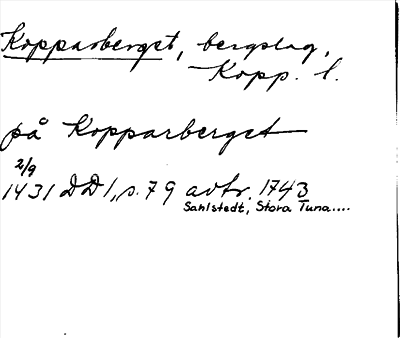 Kopparberget, bergslag,
Kopp. l.
på Kopparberget
2/9
1431 DD 1, s. 79 avtr. 1743
Sahlstedt, Stora Tuna....